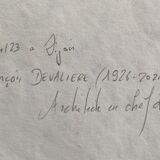 1123 à Dijon
nçois DEVALIERE (1926-202
Architecte en chef d